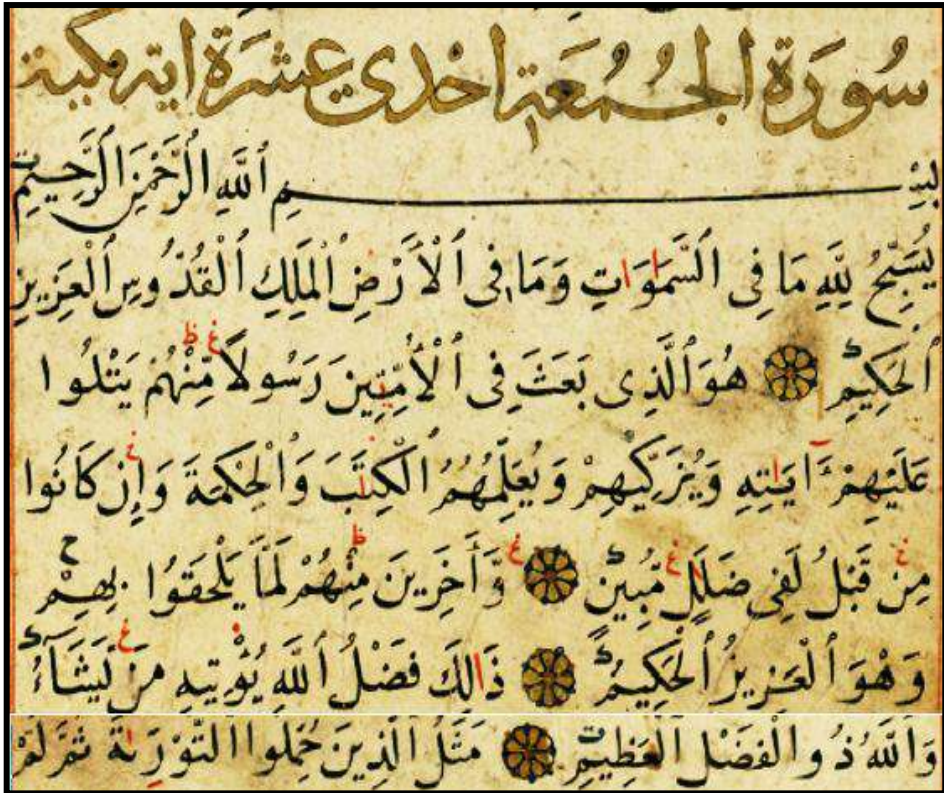 سُورَة الجُمُعَة احْدى عشرَة اية مكية
بِسْمِ ٱللَّهِ ٱلرَّحْمَٰنِ ٱلرَّحِيمِ
يُسَبِّحُ لِلَّهِ مَا فِى ٱلسَّمَوَاتِ وَمَا فِى ٱلْأَرْضِ ٱلْمَلِكِ ٱلْقُدُّوسِ ٱلْعَزِيزِ
ٱلْحَكِيمِ هُوَ ٱلَّذِى بَعَثَ فِى ٱلْأُمِّيِّينَ رَسُولًا مِّنْهُمْ يَتْلُوا
عَلَيْهِمْ ءَايَاتِهِ وَيُزَكِّيهِمْ وَيُعَلِّمُهُمُ ٱلْكِتَٰبَ وَٱلْحِكْمَةَ وَإِن كَانُوا
مِن قَبْلُ لَفِى ضَلَٰلٍ مُّبِينٍ وَّأَخَرِينَ مِنْهُمْ لَمَّا يَلْحَقُوا بِهِمْ
وَهْوَ ٱلْعَزِيزُ ٱلْحَكِيمُ ذَالِكَ فَضْلُ ٱللَّهِ يُؤْتِيهِ مَن يَشَآءُ
وَٱللَّهُ ذُو ٱلْفَضْلِ ٱلْعَظِيمِ مَثَلُ ٱلَّذِينَ حُمِّلُوا ٱلتَّوْرَىٰةَ ثُمَّ لَمْ